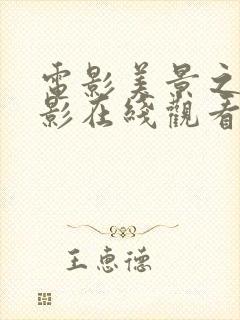 電影美景之
影在綫觀看
王惠德